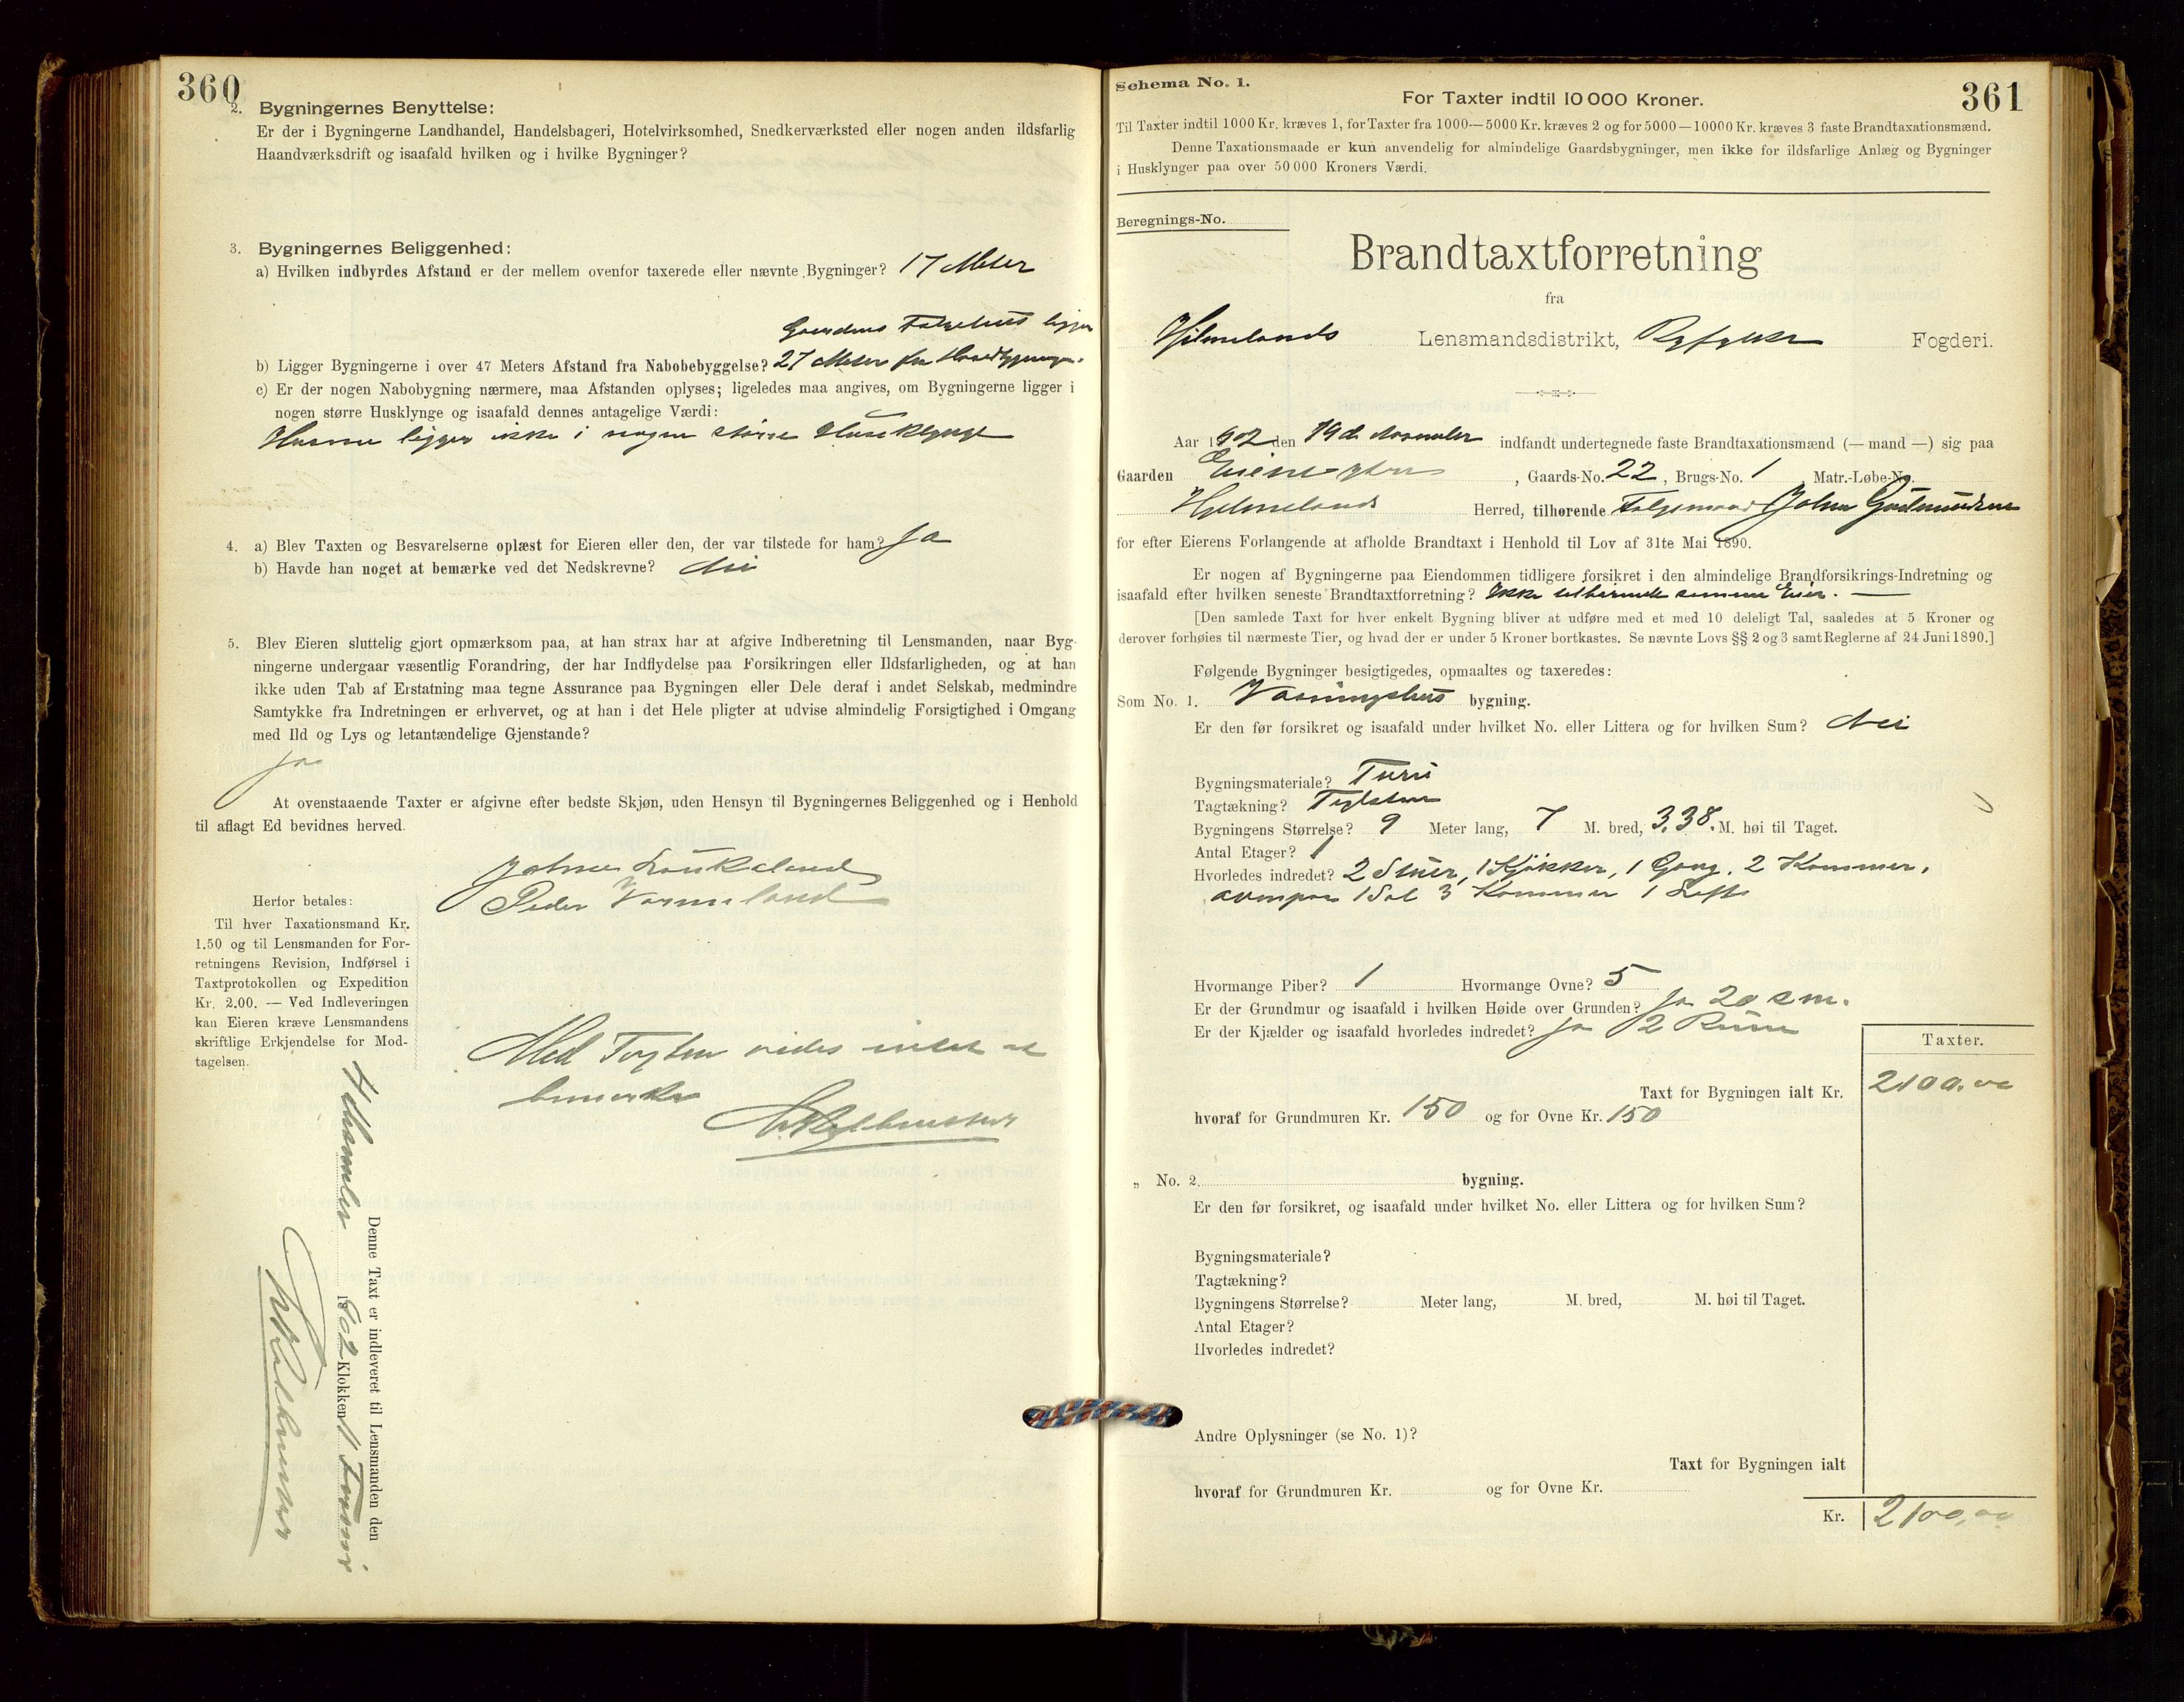 360
2. Bygningernes Benyttelse:
Er der i Bygningerne Landhandel, Handelsbageri, Hotelvirksomhed, Snedkerværksted eller nogen anden ildsfarlig
Haandværksdrift og isaafald hvilken og i hvilke Bygninger?
3. Bygningernes Beliggenhed:
a) Hvilken indbyrdes Afstand er der mellem ovenfor taxerede eller nævnte Bygninger? 17 Meter
Gaardens ligger
b) Ligger Bygningerne i over 47 Meters Afstand fra Nabobebyggelse? 27 Meter fra
c) Er der nogen Nabobygning nærmere, maa Afstanden oplyses; ligeledes maa angives, om Bygningerne ligger i
nogen større Husklynge og isaafald dennes antagelige Værdi:
Husene ligger ikke i nogen større Huseklynge
4. a) Blev Taxten og Besvarelserne oplæst for Eieren eller den, der var tilstede for ham? Ja
b) Havde han noget at bemærke ved det Nedskrevne? Nei
5. Blev Eieren sluttelig gjort opmærksom paa, at han strax har at afgive Indberetning til Lensmanden, naar Byg-
ningerne undergaar væsentlig Forandring, der har Indflydelse paa Forsikringen eller Ildsfarligheden, og at han
ikke uden Tab af Erstatning maa tegne Assurance paa Bygningen eller Dele deraf i andet Selskab, medmindre
Samtykke fra Indretningen er erhvervet, og at han i det Hele pligter at udvise almindelig Forsigtighed i Omgang
med Ild og Lys og letantændelige Gjenstande?
Ja
At ovenstaaende Taxter er afgivne efter bedste Skjøn, uden Hensyn til Bygningernes Beliggenhed og i Henhold
til aflagt Ed bevidnes herved.
Peder
Herfor betales:
Til hver Taxationsmand Kr.
1.50 og til Lensmanden for For-
retningens Revision, Indførsel i
Taxtprotokollen og Expedition
Kr. 2.00. — Ved Indleveringen
kan Eieren kræve Lensmandens
skriftlige Erkjendelse for Mod-
tagelsen.
Med Taxten vides intet at
bemerke
Denne Taxt er indleveret til Lensmanden den
18 902 Klokken 11 Form
361
Schema No. 1.
For Taxter indtil 10 000 Kroner.
Til Taxter indtil 1000 Kr. kræves 1, for Taxter fra 1000—5000 Kr. kræves 2 og for 5000—10000 Kr. kræves 3 faste Brandtaxationsmænd.
Denne Taxationsmaade er kun anvendelig for almindelige Gaardsbygninger, men ikke for ildsfarlige Anlæg og Bygninger
i Husklynger paa over 50 000 Kroners Værdi.
Beregnings-No.
Brandtaxtforretning
fra
Hjelmelands Lensmandsdistrikt, Ryfylke Fogderi.
Aar 1902 den 19d November indfandt undertegnede faste Brandtaxationsmænd (— mand —) sig paa
Gaarden , Gaards-No. 22, Brugs-No. 1 Matr.-Løbe-No.
Hjelmelands Herred, tilhørende John Gudmundsen
for efter Eierens Forlangende at afholde Brandtaxt i Henhold til Lov af 31te Mai 1890.
Er nogen af Bygningerne paa Eiendommen tidligere forsikret i den almindelige Brandforsikrings-Indretning og
isaafald efter hvilken seneste Brandtaxtforretning? Ikke tilhørende samme Eier. —
[Den samlede Taxt for hver enkelt Bygning bliver at udføre med et med 10 deleligt Tal, saaledes at 5 Kroner og
derover forhøies til nærmeste Tier, og hvad der er under 5 Kroner bortkastes. Se nævnte Lovs §§ 2 og 3 samt Reglerne af 24 Juni 1890.]
Følgende Bygninger besigtigedes, opmaaltes og taxeredes:
Som No. 1. Vaaningshus bygning.
Er den før forsikret og isaafald under hvilket No. eller Littera og for hvilken Sum? Nei
Bygningsmateriale?
Tagtækning? Teglsten
Bygningens Størrelse? 9 Meter lang, 7 M. bred, 3.38. M. høi til Taget.
Antal Etager? 1
Hvorledes indredet? 2 Stuer, 1 Kjøkken, 1 Gang, 2 Kammer,
ovenpaa 1 Sal 3 Kammer 1 Loft
Hvormange Piber? 1 Hvormange Ovne? 5
Er der Grundmur og isaafald i hvilken Høide over Grunden? Ja 20 cm.
Er der Kjælder og isaafald hvorledes indredet? Ja 2 Rum
Taxter.
Taxt for Bygningen ialt Kr. 2100,00
hvoraf for Grundmuren Kr. 150 og for Ovne Kr. 150
„ No. 2 bygning.
Er den før forsikret, og isaafald under hvilket No. eller Littera og for hvilken Sum?
Bygningsmateriale?
Tagtækning?
Bygningens Størrelse? Meter lang, M. bred, M. høi til Taget.
Antal Etager?
Hvorledes indredet?
Andre Oplysninger (se No. 1)?
Taxt for Bygningen ialt
hvoraf for Grundmuren Kr. og for Ovne Kr.
Kr. 2100,00